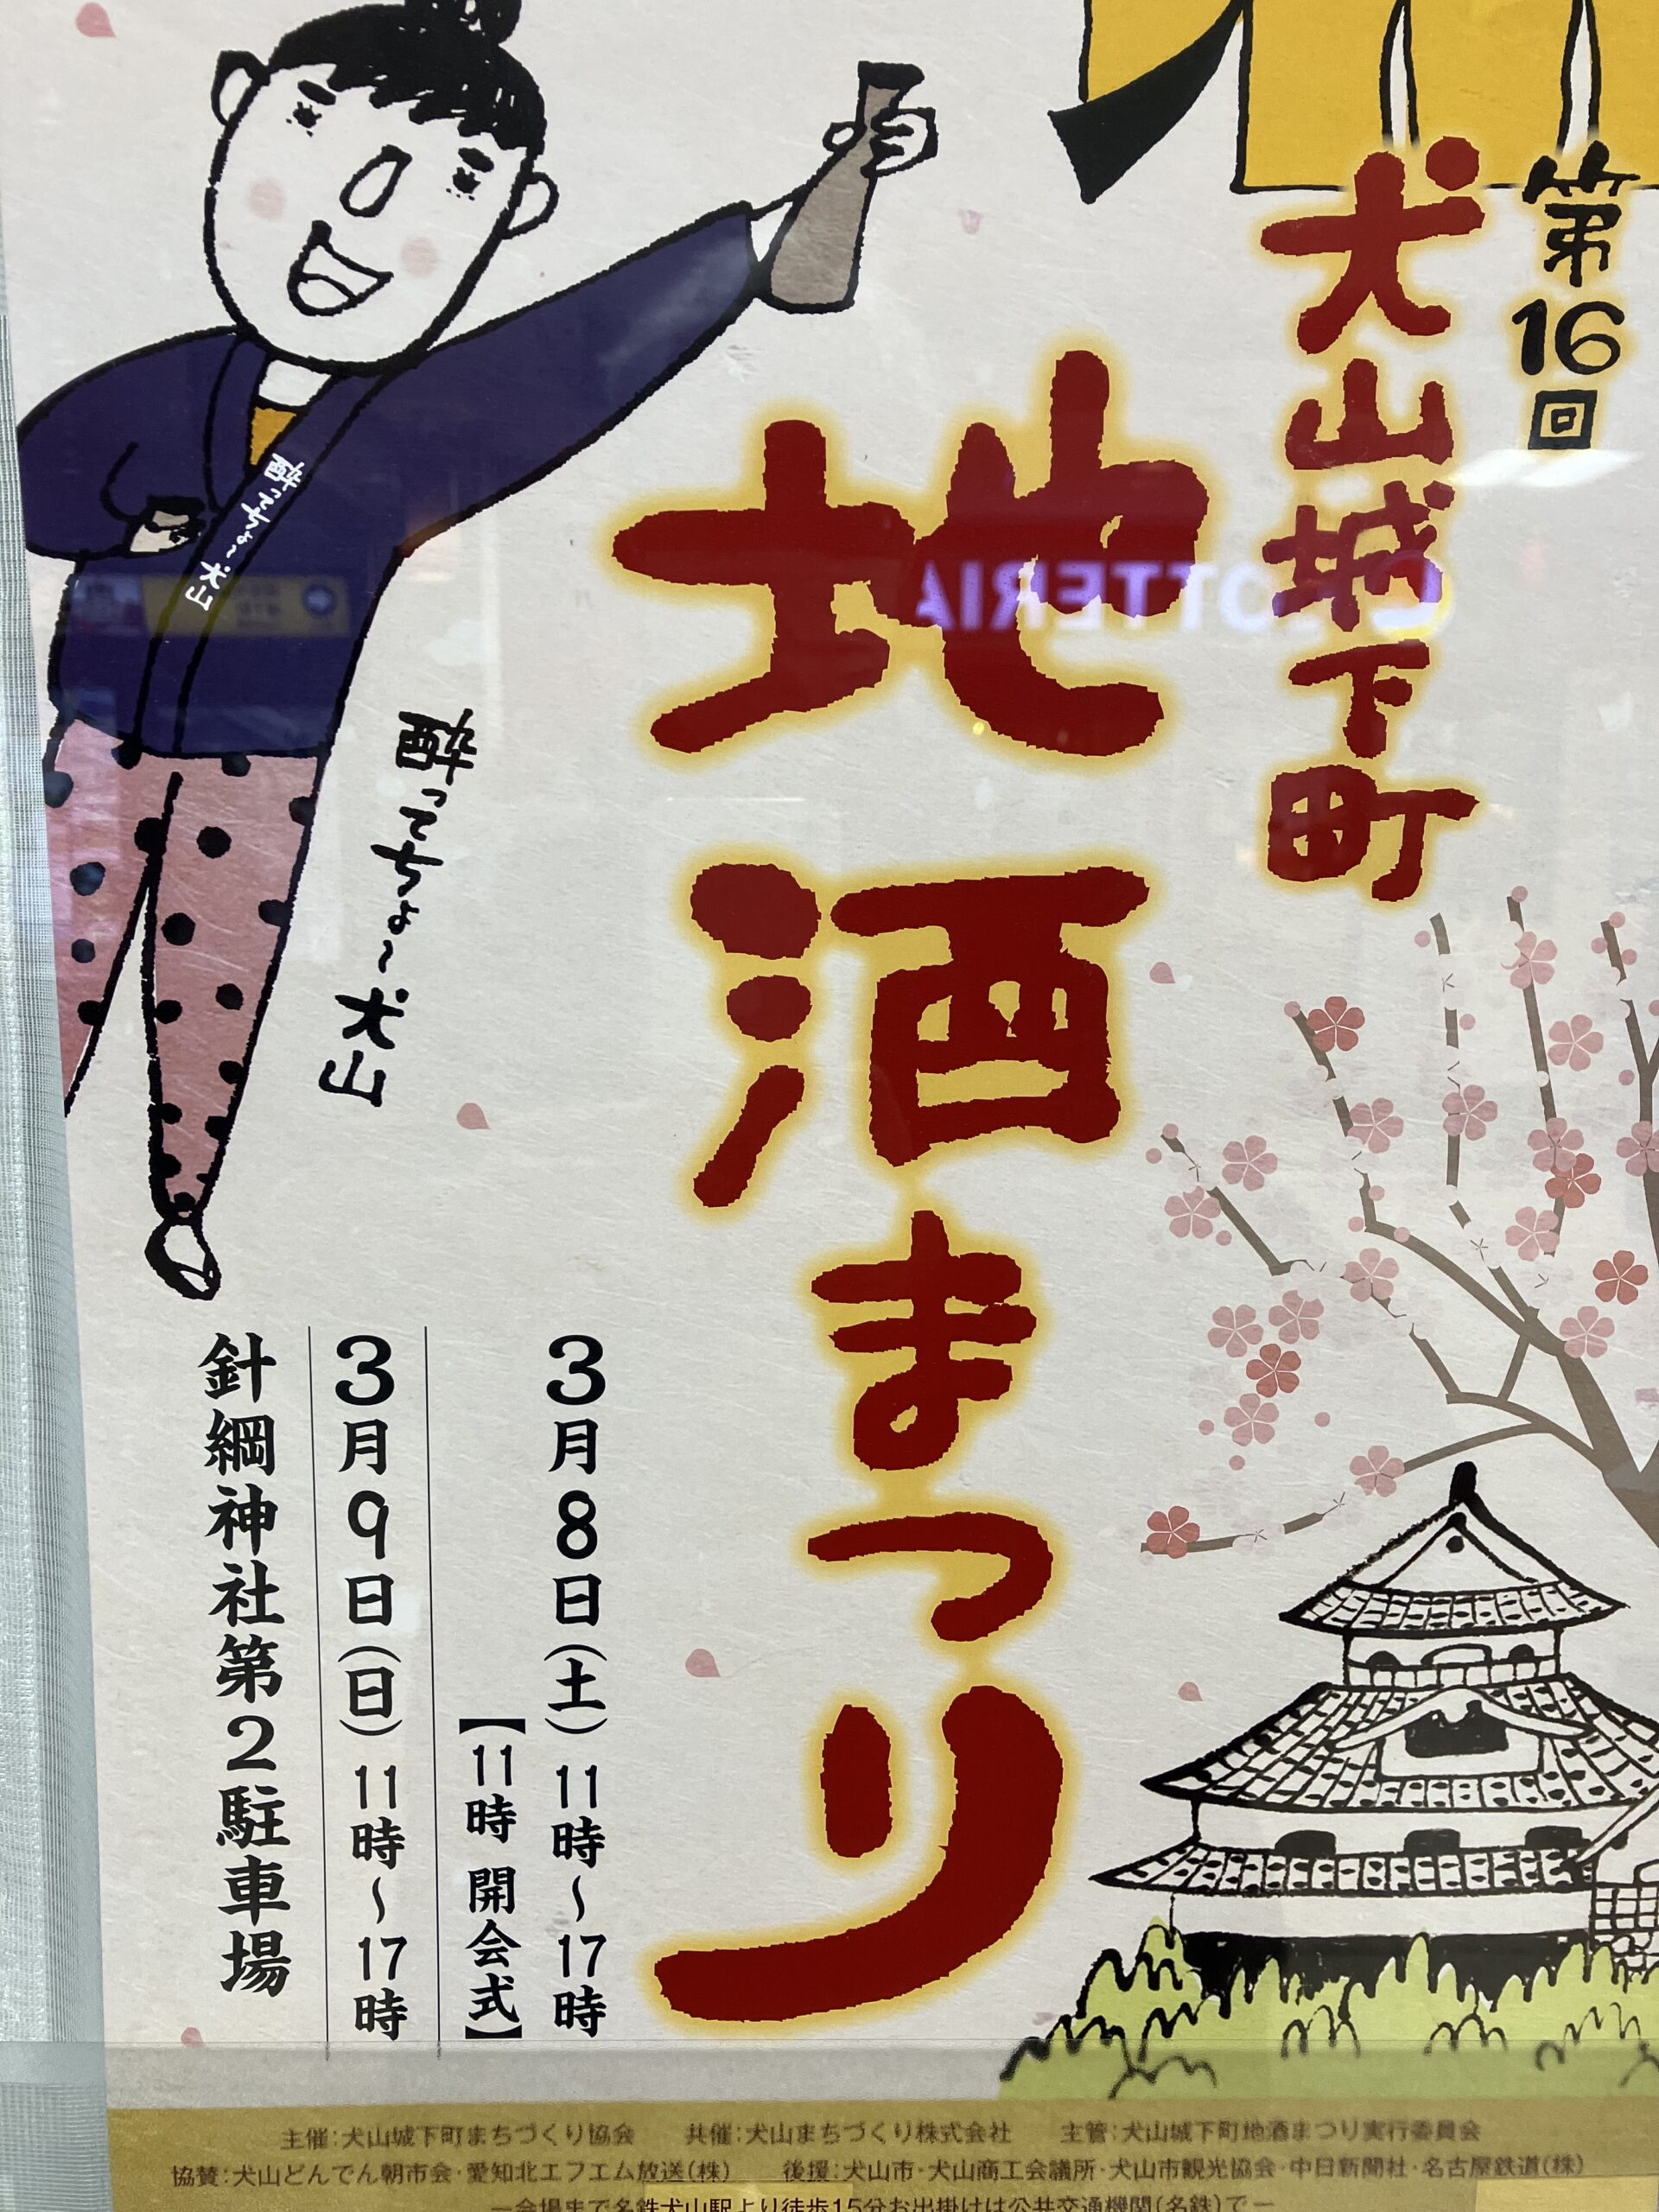 第16回
犬山城下町
地酒まつり
LOTTERIA
酔ってちょ～犬山
酔ってちょ～犬山
3月8日(土) 11時～17時
【11時 開会式】
3月9日(日) 11時～17時
針綱神社第2駐車場
主催:犬山城下町まちづくり協会 共催:犬山まちづくり株式会社 主管:犬山城下町地酒まつり実行委員会
協賛:犬山どんでん朝市会・愛知北エフエム放送(株) 後援:犬山市・犬山商工会議所・犬山市観光協会・中日新聞社・名古屋鉄道(株)
－会場まで名鉄犬山駅より徒歩15分お出掛けは公共交通機関(名鉄)で－